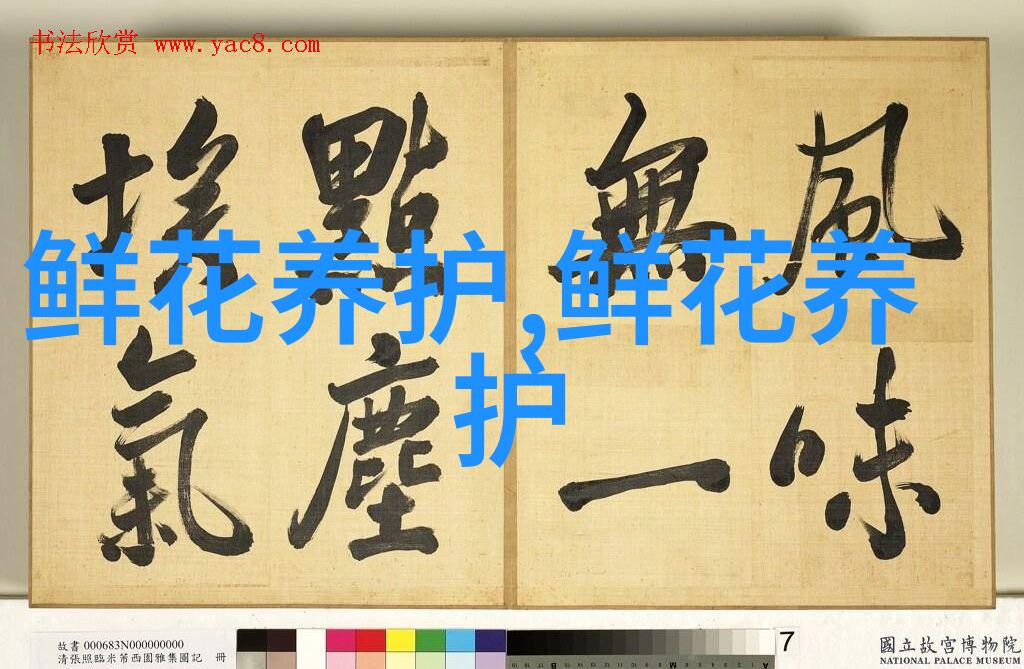 书法欣赏 www.yac8.com
風味
無一
點塵
埃氣
鲜花养护,鲜花养
护
故書 000683N000000000
清張照臨米芾西園雅集圖記 冊
7
國立故宮博物院
NATIONAL PALACE MUSEUM